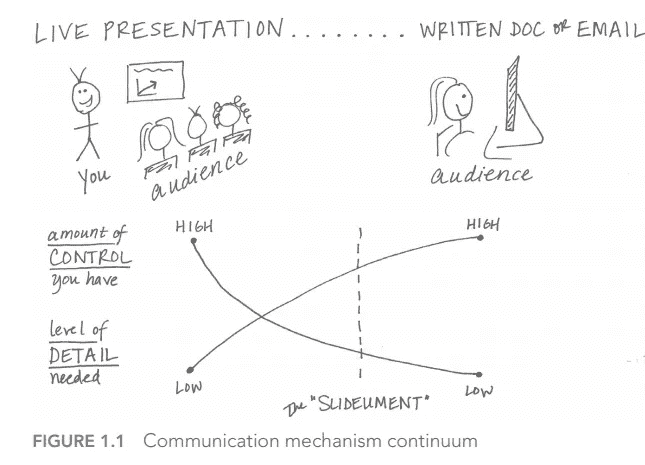 LIVE PRESENTATION ........ WRITTEN DOC OR EMAIL
you
audience
audience
HIGH
HIGH
amount of
CONTROL
you have
level of
DETAIL
needed
LOW
LOW
The "SLIDEUMENT"
FIGURE 1.1 Communication mechanism continuum